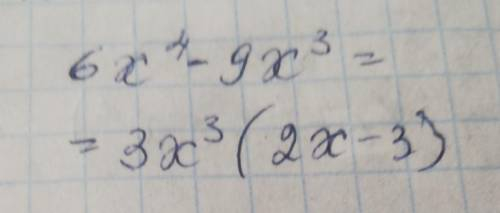 6x⁴ - 9x³ =
= 3x³ (2x - 3)